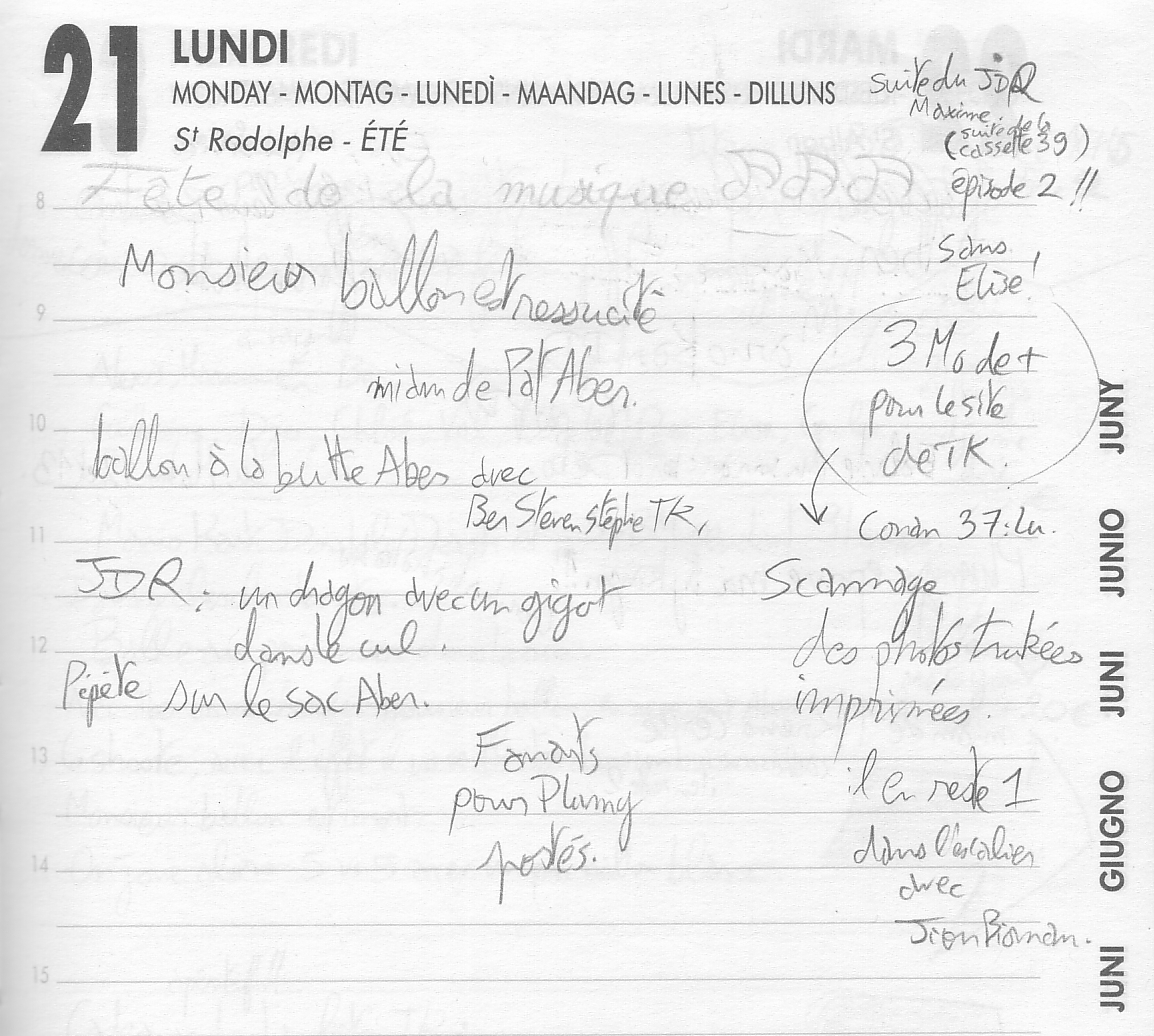 21 LUNDI
MONDAY - MONTAG - LUNEDÌ - MAANDAG - LUNES - DILLUNS
St Rodolphe - ÉTÉ
suite du JDR
Maxime.
(suite de la
cassette 39)
épisode 2 !!
sans
Elise!
8
Fête de la musique
Monsieur ballon est ressucité
9
midi de Aber.
3 Mo de +
pour le site
de TK.
10
ballon à la butte Aber avec
Ben Steven Stéphe TK,
11
Conan 37: Lu.
JDR: un dragon avec un gigot
dans le cul.
12
Pépète sur le sac Aber.
Scannage
des photos trukées
imprimées.
13
Fanarts
pour Plumy
postés.
il en reste 1
dans l'escalier
avec
14
15
JUNY
JUNIO
JUNI
GIUGNO
JUNI